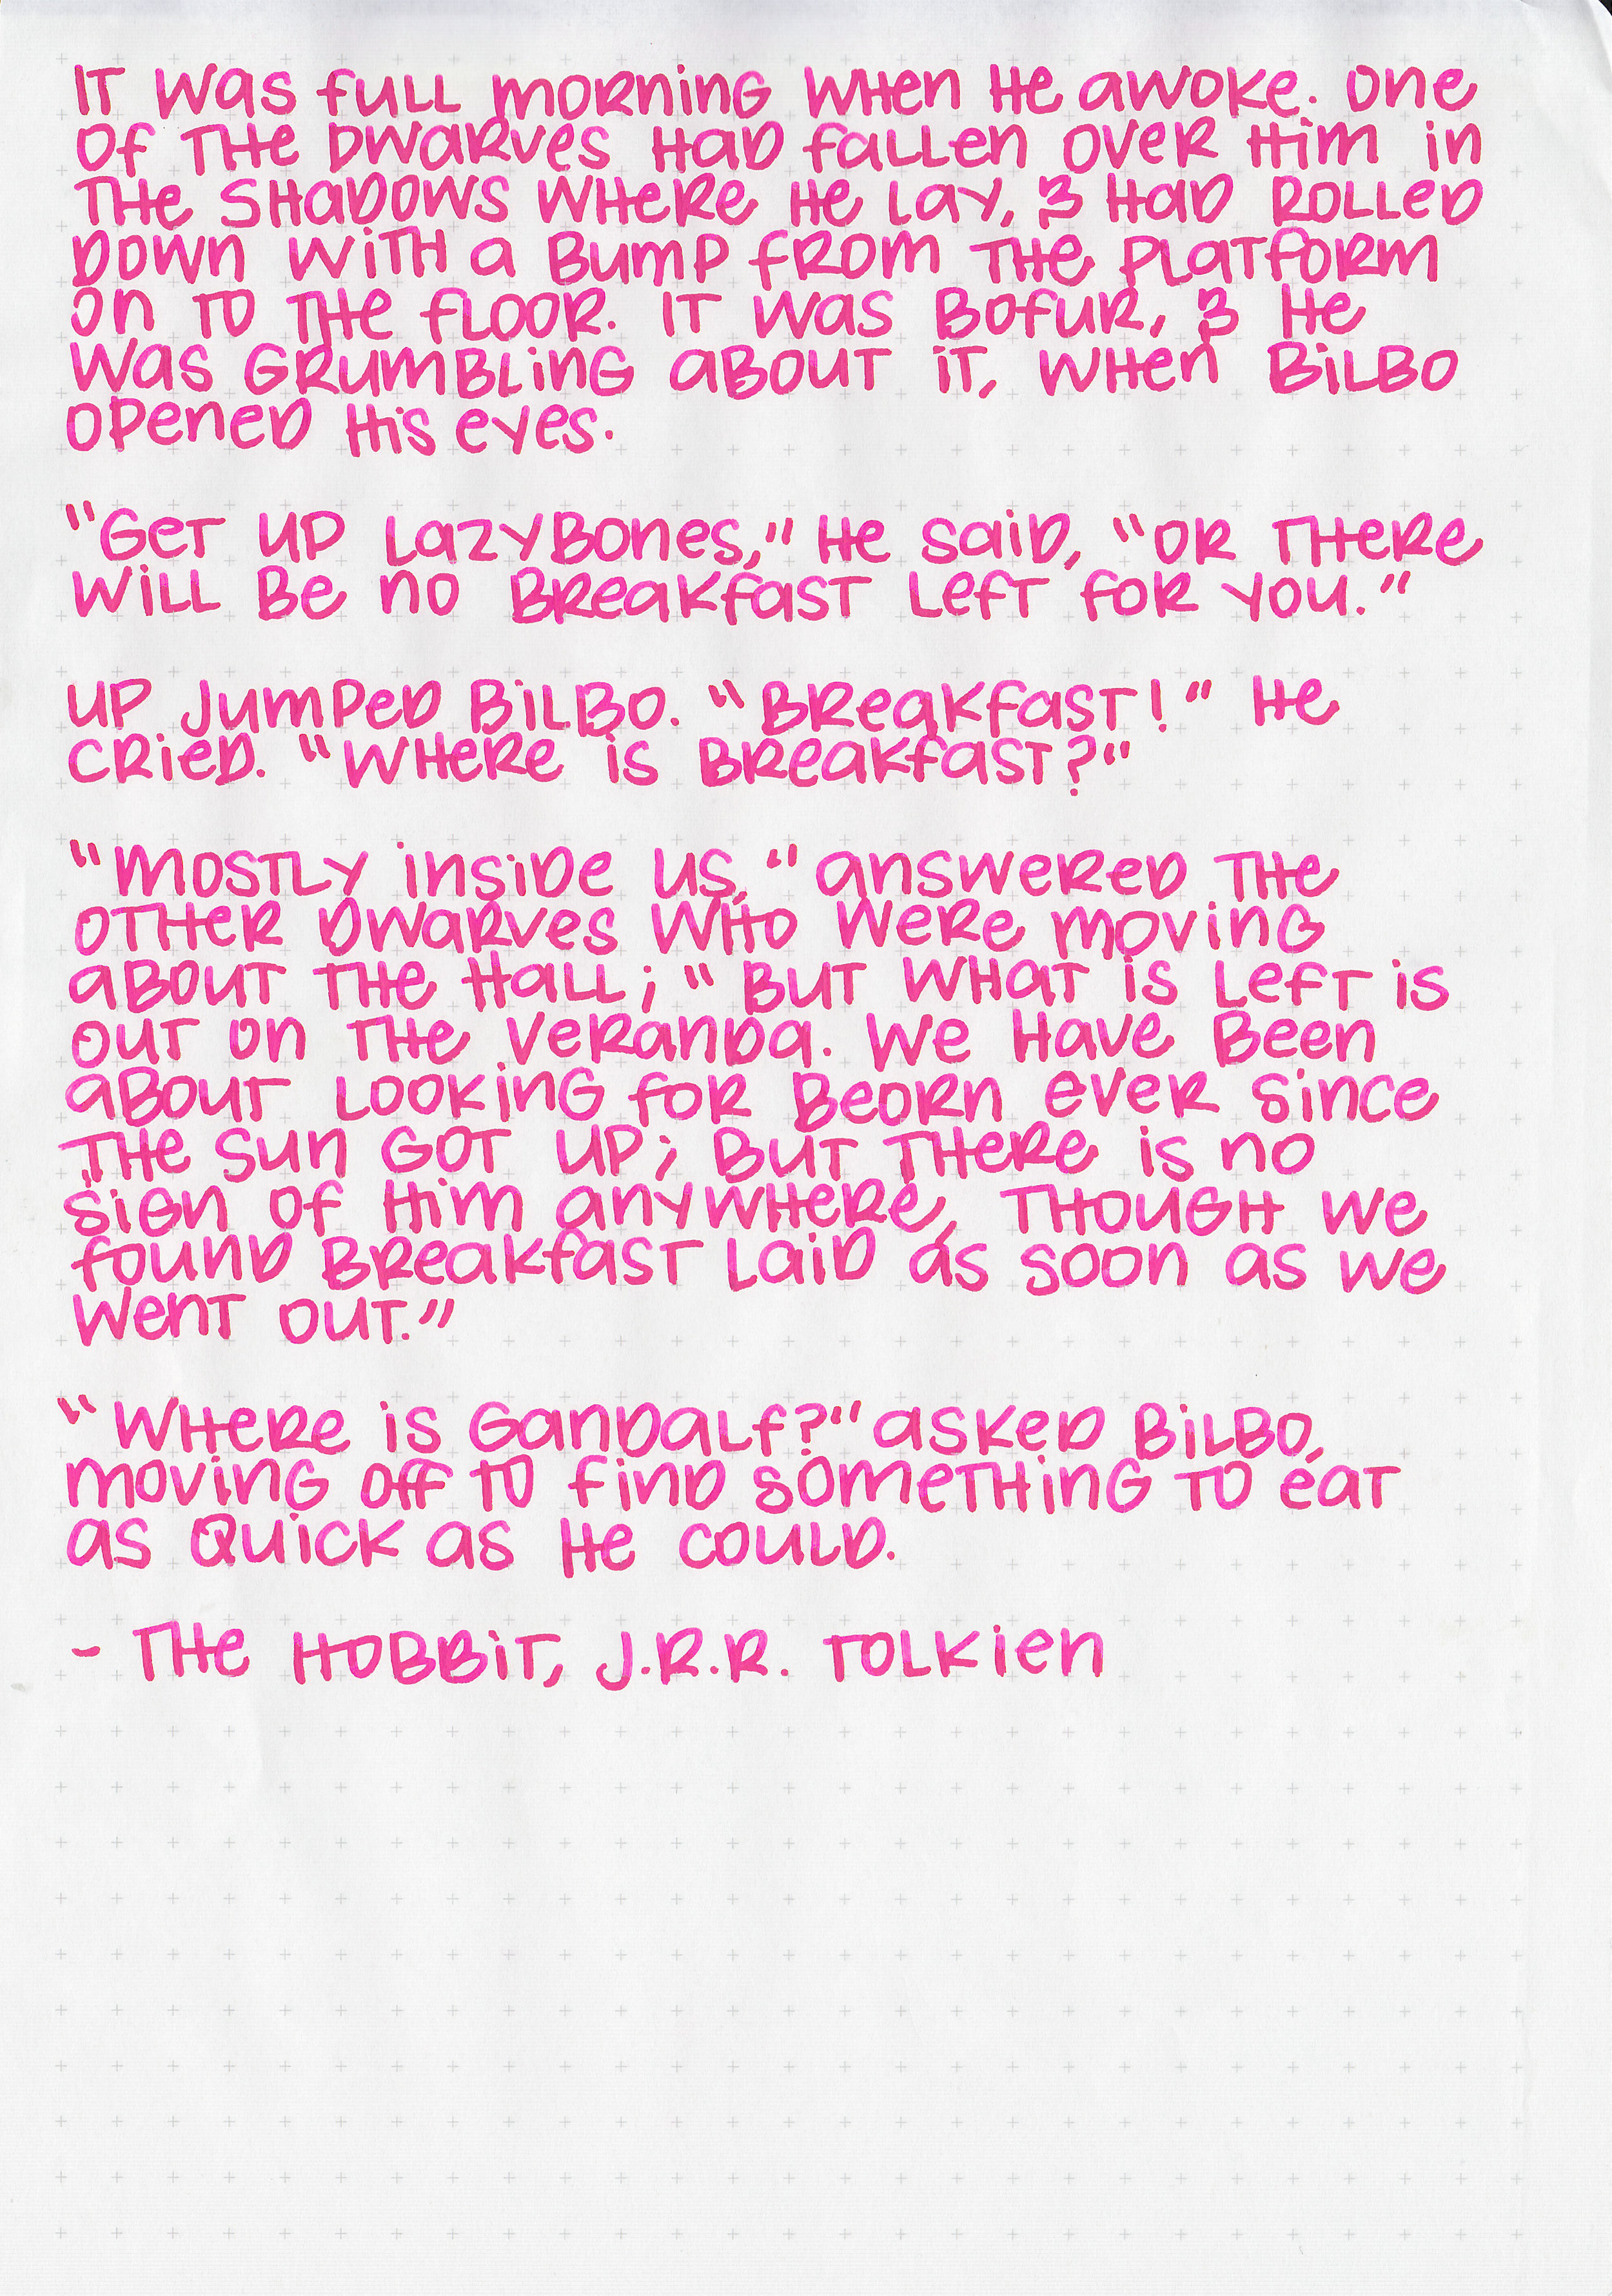 It was full morning when he awoke. One
of the dwarves had fallen over him in
the shadows where he lay, & had rolled
down with a bump from the platform
on to the floor. It was Bofur, & he
was grumbling about it, when Bilbo
opened his eyes.
"Get up lazybones," he said, "or there
will be no breakfast left for you."
Up jumped Bilbo. "Breakfast!" he
cried. "Where is breakfast?"
"Mostly inside us," answered the
other dwarves who were moving
about the hall; "but what is left is
out on the veranda. We have been
about looking for Beorn ever since
the sun got up; but there is no
sign of him anywhere, though we
found breakfast laid as soon as we
went out."
"Where is Gandalf?" asked Bilbo,
moving off to find something to eat
as quick as he could.
- The Hobbit, J.R.R. Tolkien